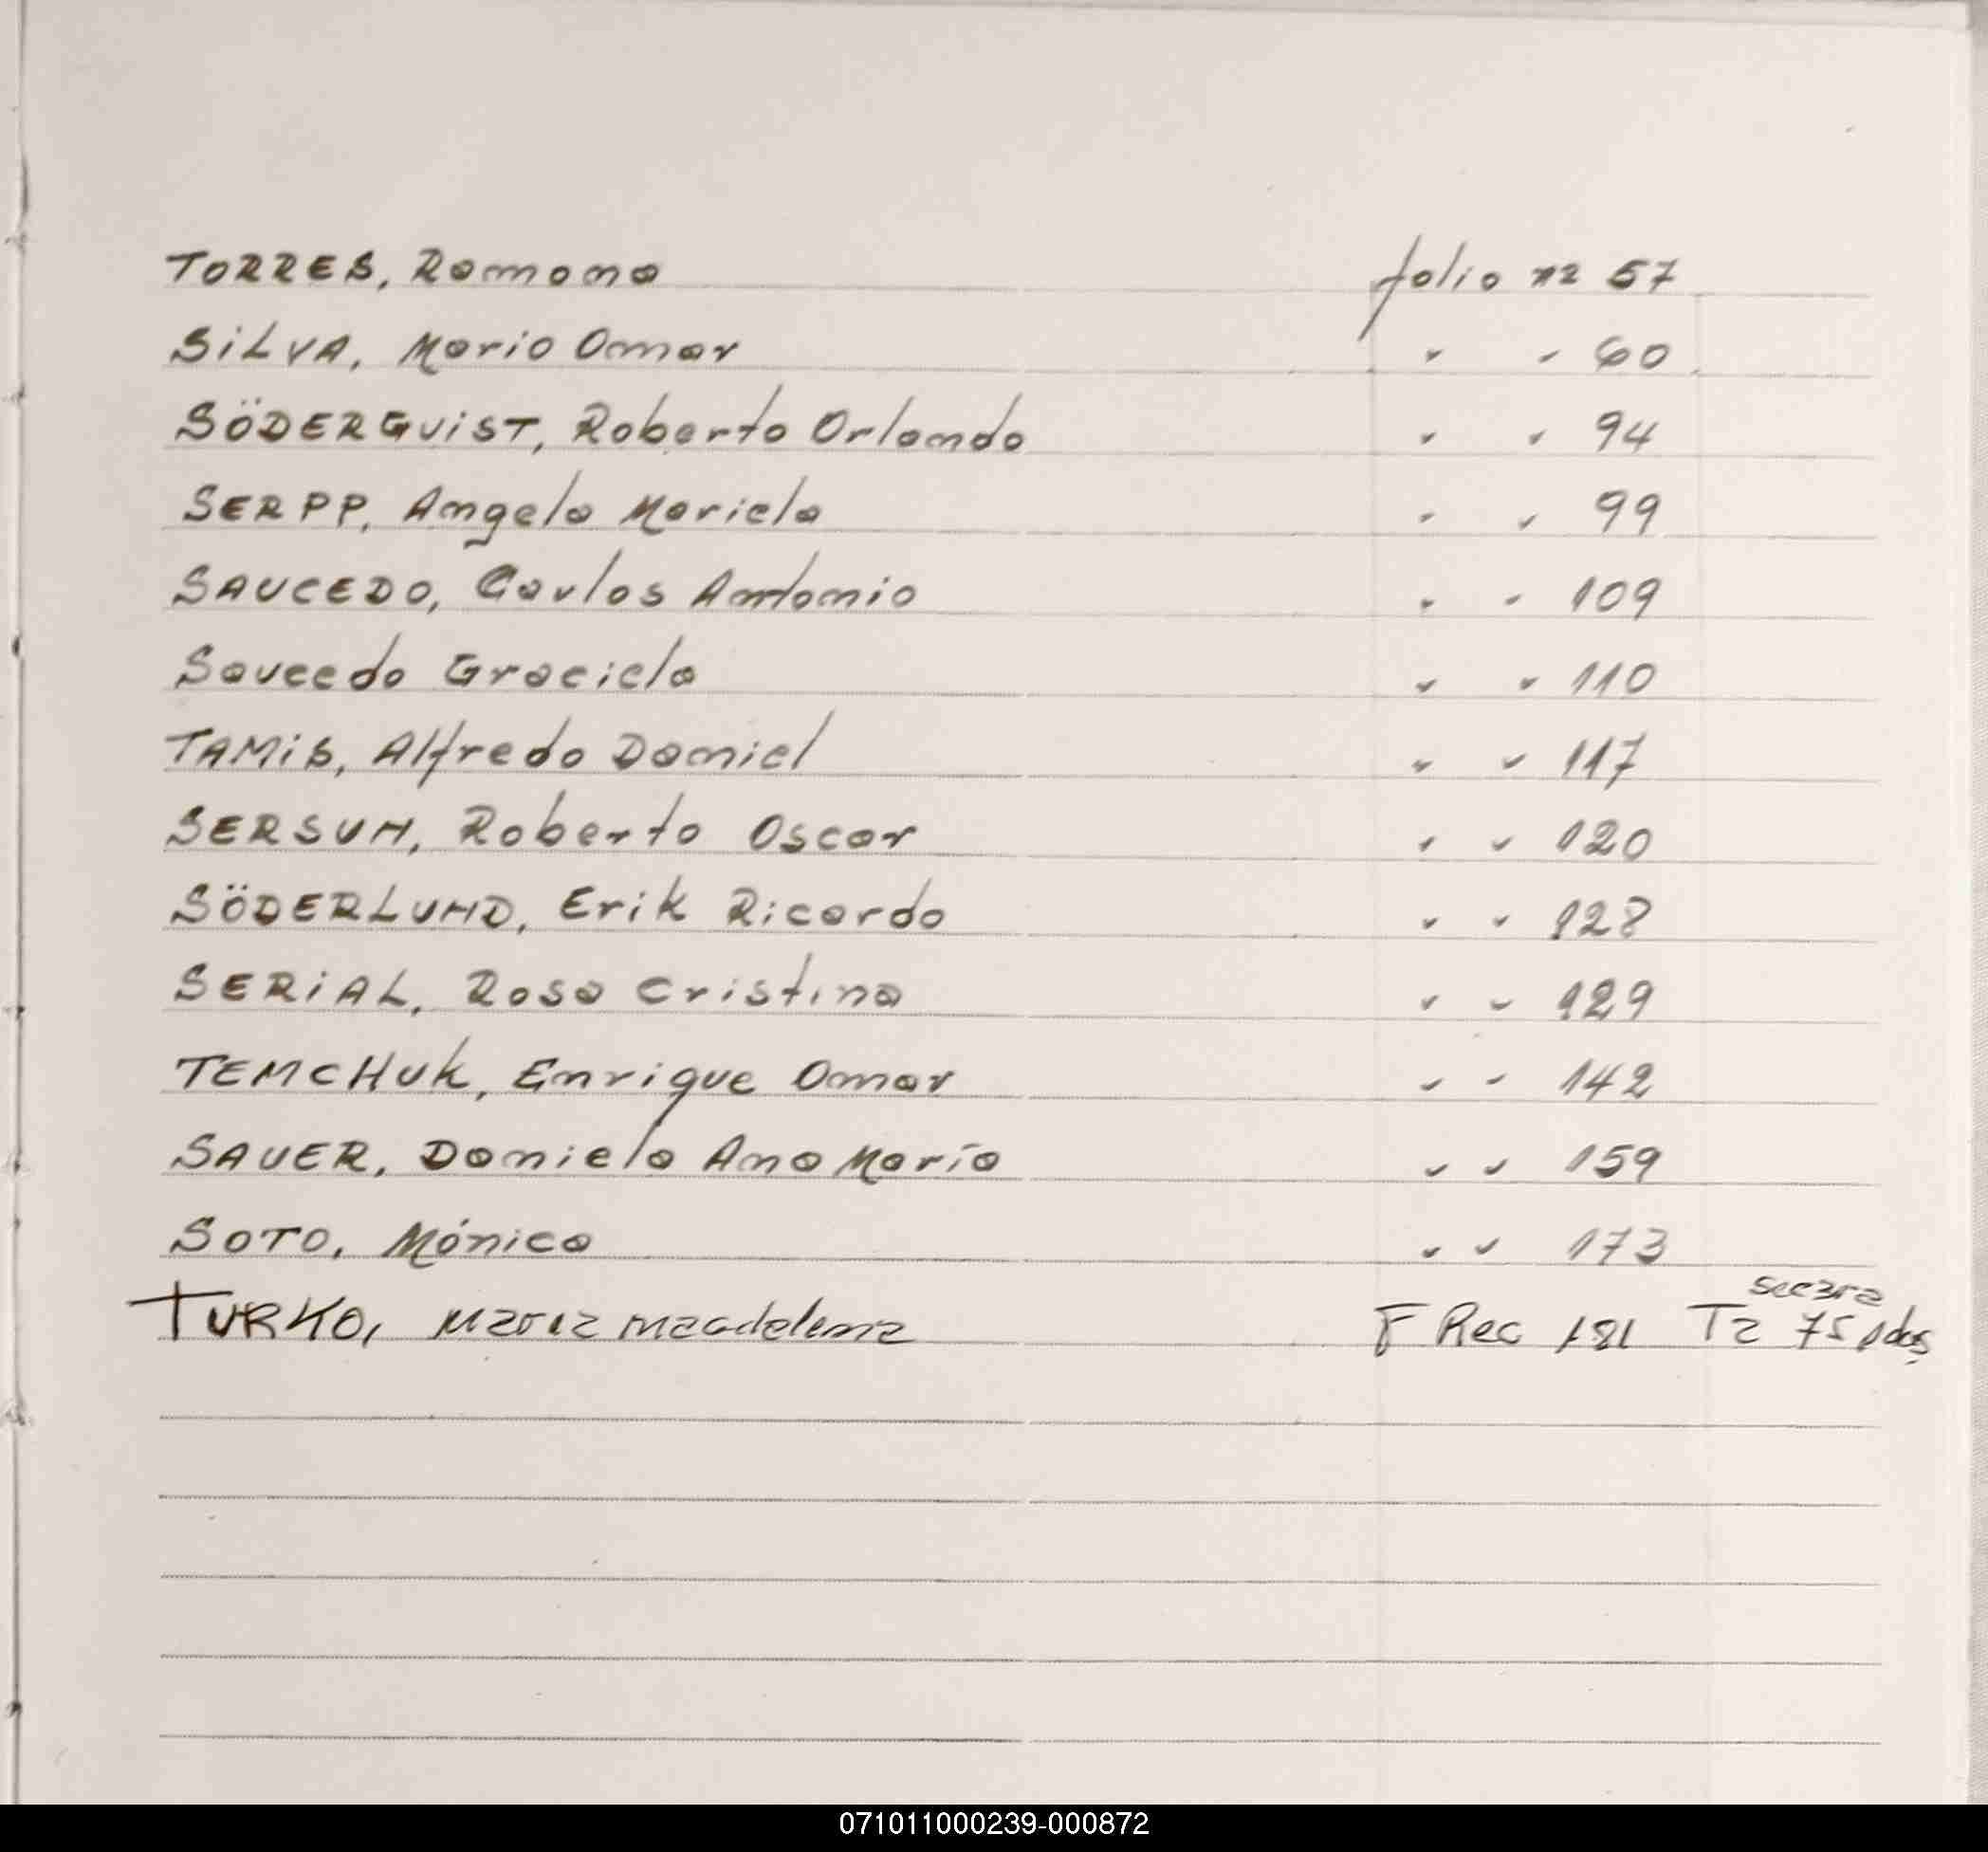 TORRES, Ramona folio nº 57
SILVA, Mario Omar " " 60
SÖDERQUIST, Roberto Orlando " " 94
SERPP, Angela Mariela " " 99
SAUCEDO, Carlos Antonio " " 109
Saucedo Graciela " " 110
TAMIS, Alfredo Daniel " " 117
SERSUN, Roberto Oscar " " 120
SÖDERLUND, Erik Ricardo " " 128
SERIAL, Rosa Cristina " " 129
TEMCHUK, Enrique Omar " " 142
SAUER, Daniela Ana María " " 159
SOTO, Mónica " " 173
TURKO, Maria Magdalena F Rec 181 Ta 75
071011000239-000872